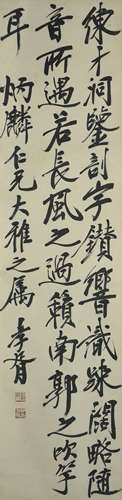 陳才祠鑒剖字鑽響識疎闊略隨
音所遇若長風之過籟南郭之吹竽
耳 炳麟仁兄大雅之屬 孝胥